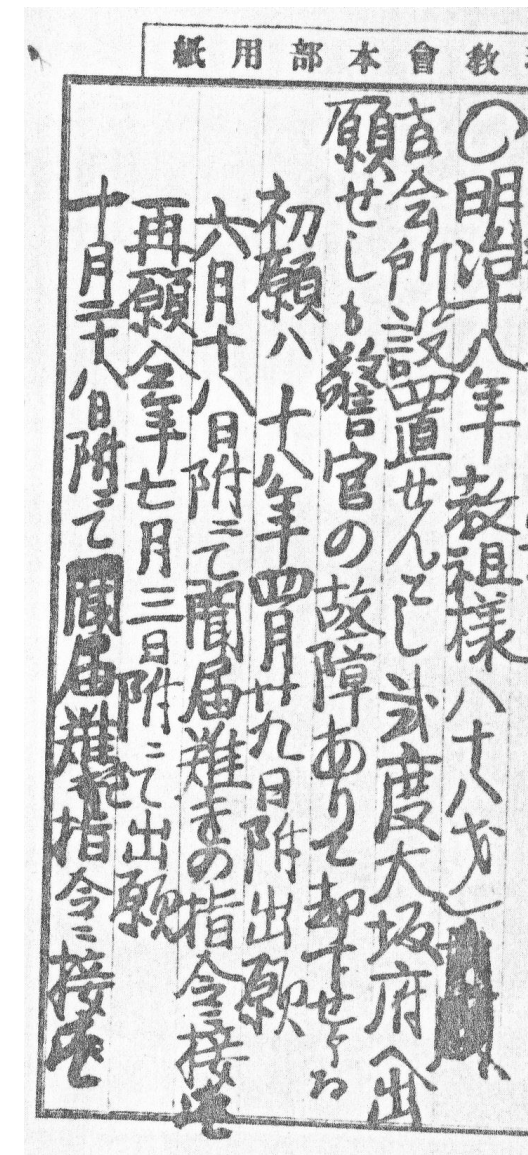 教會本部用紙
〇明治十八年教祖様八十八才
講会所設置せんとし弐度大坂府へ出
願せしも警官の故障ありて却下せらる
初願ハ十八年四月廿九日附出願
六月十八日附ニて聞届難きの指令ニ接ス
再願仝年七月三日附ニて出願
十月二十八日附ニて聞届難き指令ニ接ス